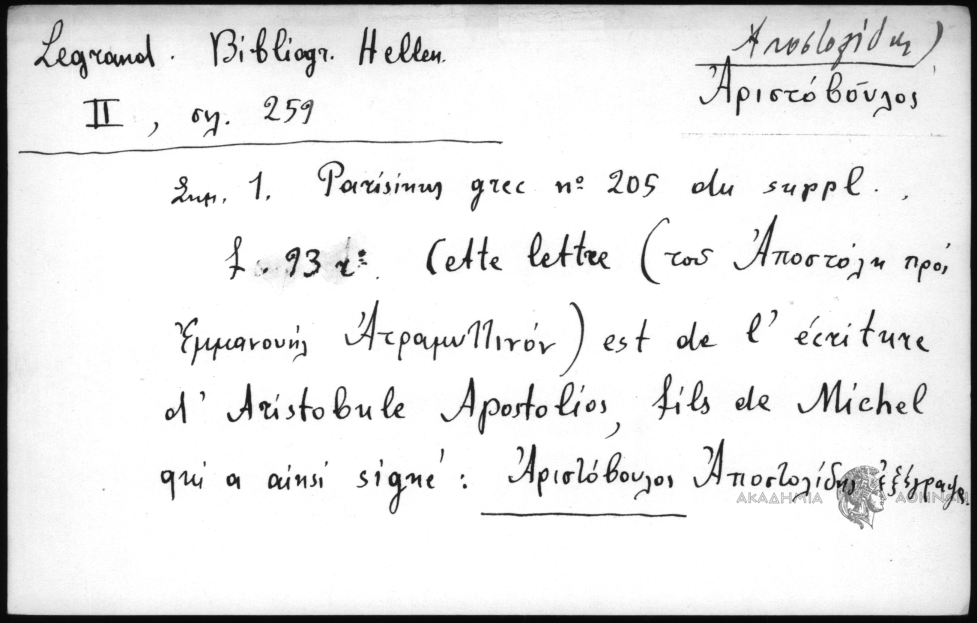 Legrand. Bibliogr. Hellen.
II, σελ. 259
Ἀποστολίδης)
Ἀριστόβουλος
Σημ. 1. Parisinus grec nº 205 du suppl.,
f. 93 rº. Cette lettre (τοῦ Ἀποστόλη πρὸς
Ἐμμανουὴλ Ἀτραμυττινόν) est de l'écriture
d'Aristobule Apostolios, fils de Michel
qui a ainsi signé: Ἀριστόβουλος Ἀποστολίδης ἐξέγραψε.
ΑΚΑΔΗΜΙΑ ΑΘΗΝΩΝ